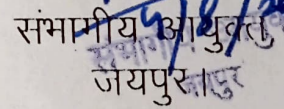 संभागीय आयुक्त,
जयपुर।